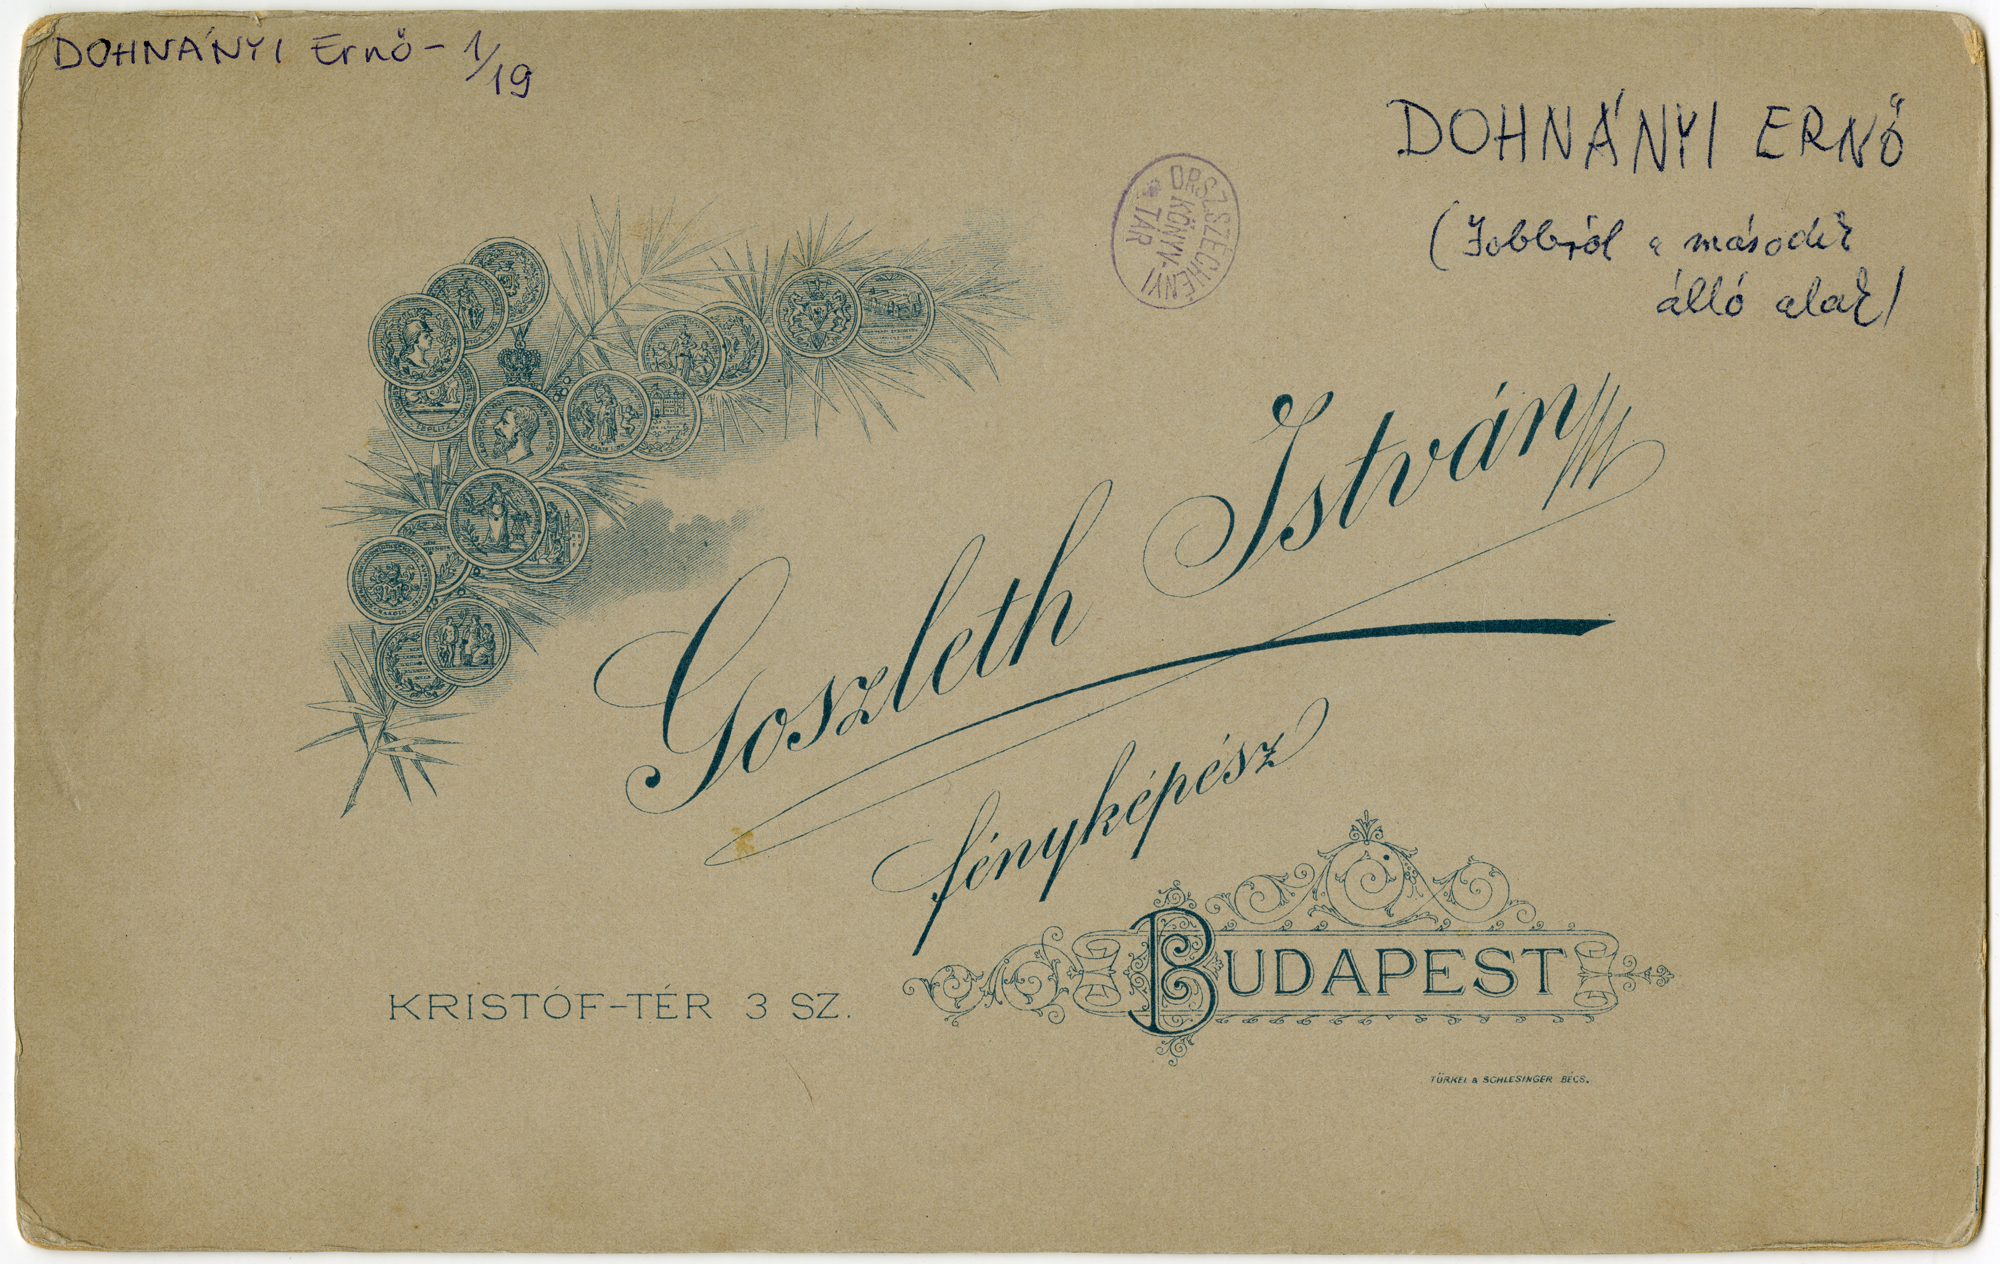 DOHNÁNYI Ernő - 1/19
DOHNÁNYI ERNŐ
(Jobbról a második
álló alak)
ORSZ. SZÉCHÉNYI
KÖNYV-
TÁR
Goszleth István
fényképész
BUDAPEST
KRISTÓF-TÉR 3 SZ.
TÜRKEL & SCHLESINGER BÉCS.